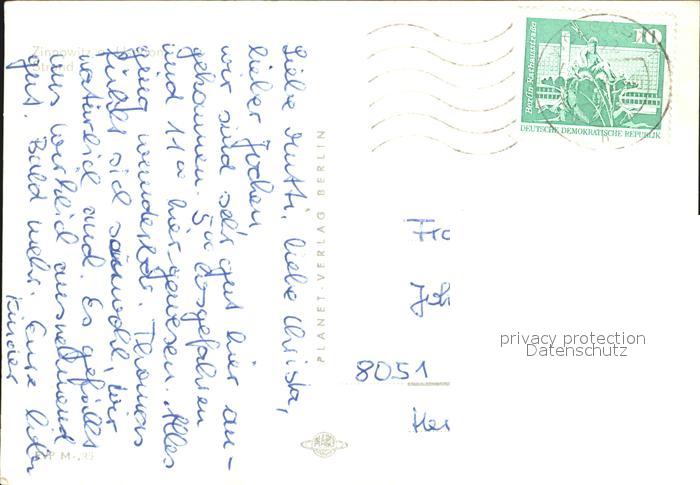 Zinnowitz
Strand
Liebe Mutti, liebe Christa,
lieber Jochen
wir sind sehr gut hier an-
gekommen. 5 losgefahren
und 11 hier gewesen. Alles
ging wunderbar. Thomas
fühlt sich sauwohl, wir
natürlich auch. Es gefällt
uns wirklich ausnehmend
gut. Bald mehr. Eure lieben
Kinder
EVP M -,95
PLANET-VERLAG BERLIN
Berlin, Rathausstraße
10
DEUTSCHE DEMOKRATISCHE REPUBLIK
Fra
Joh
8051
Hei
privacy protection
Datenschutz